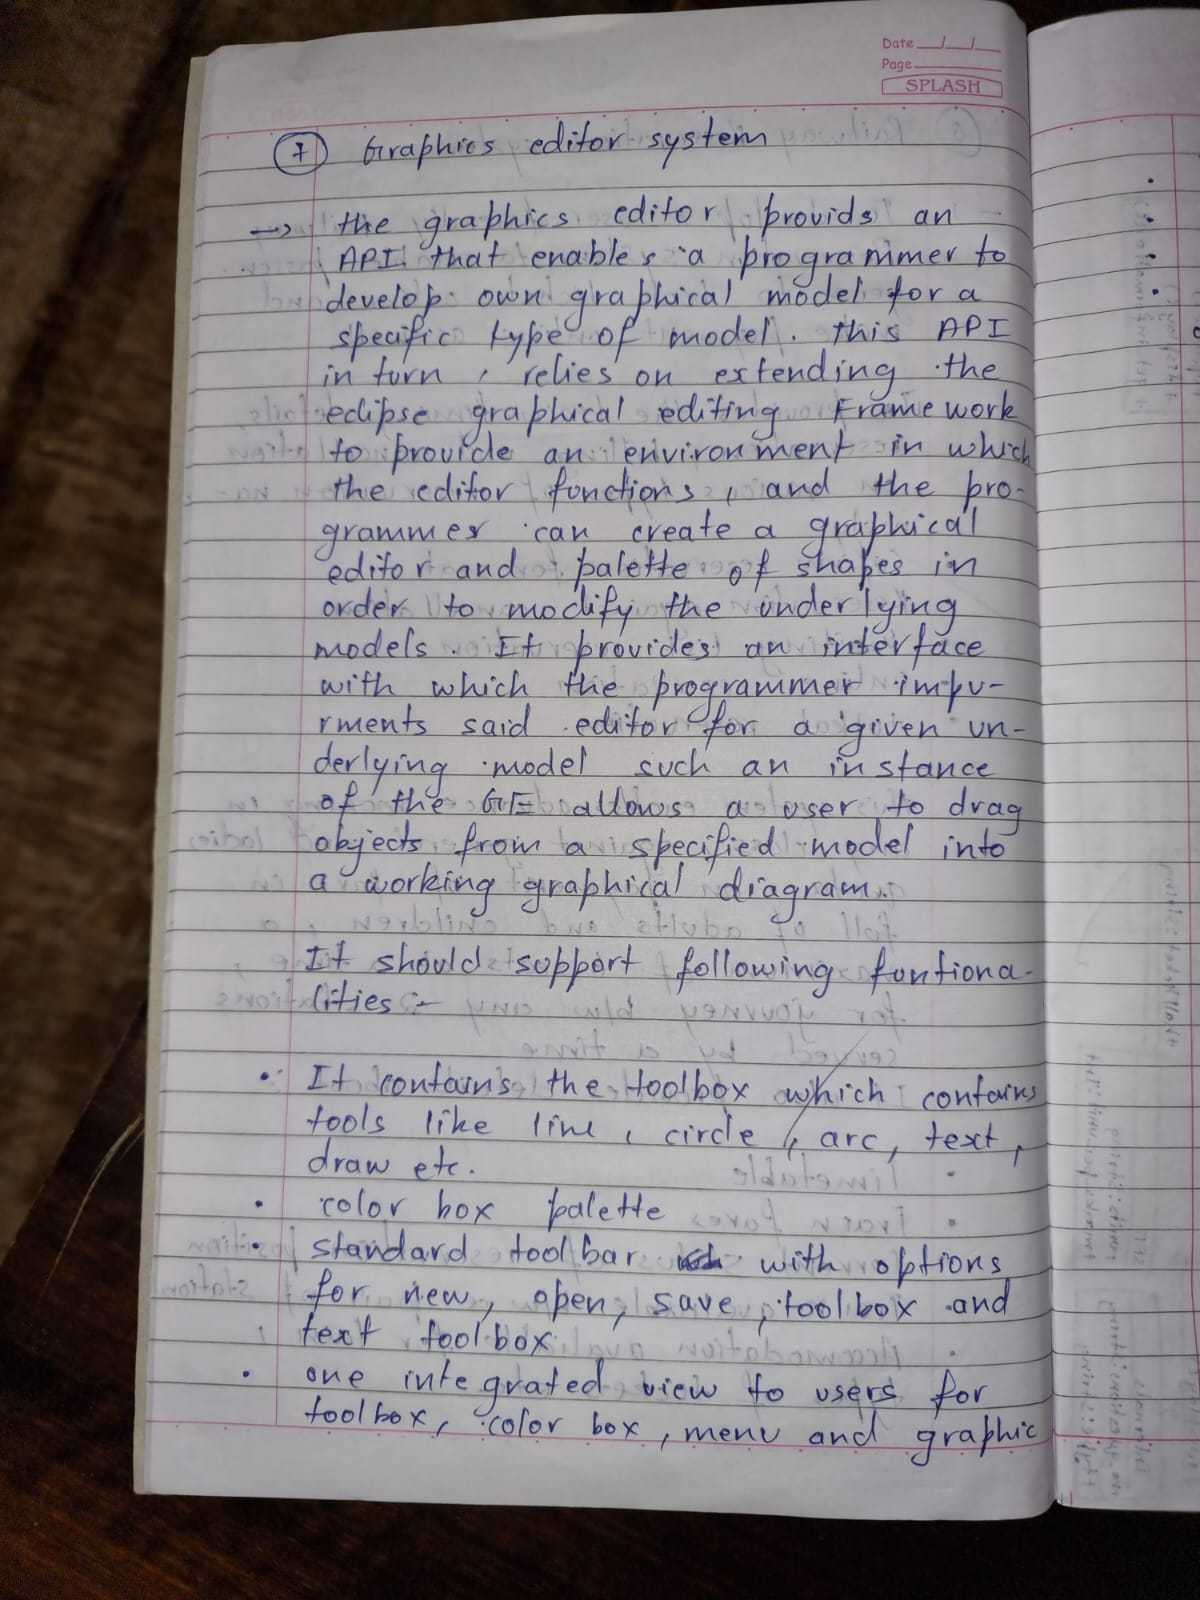 Date
Page
SPLASH
7 Graphics editor system
→ the graphics editor provids an
API that enables a programmer to
develop own graphical model for a
specific type of model. this API
in turn, relies on extending the
eclipse graphical editing Frame work
to provide an environment in which
the editor functions, and the pro-
grammer can create a graphical
editor and palette of shapes in
order to modify the underlying
models. It provides an interface
with which the programmer impu-
rments said editor for a given un-
derlying model such an instance
of the GE allows a user to drag
objects from a specified model into
a working graphical diagram.
It should support following funtiona-
lities :-
• It contains the toolbox which contains
tools like line, circle, arc, text,
draw etc.
• color box palette
• standard toolbar with options
for new, open, save, toolbox and
text toolbox
• one integrated view to users for
toolbox, color box, menu and graphic